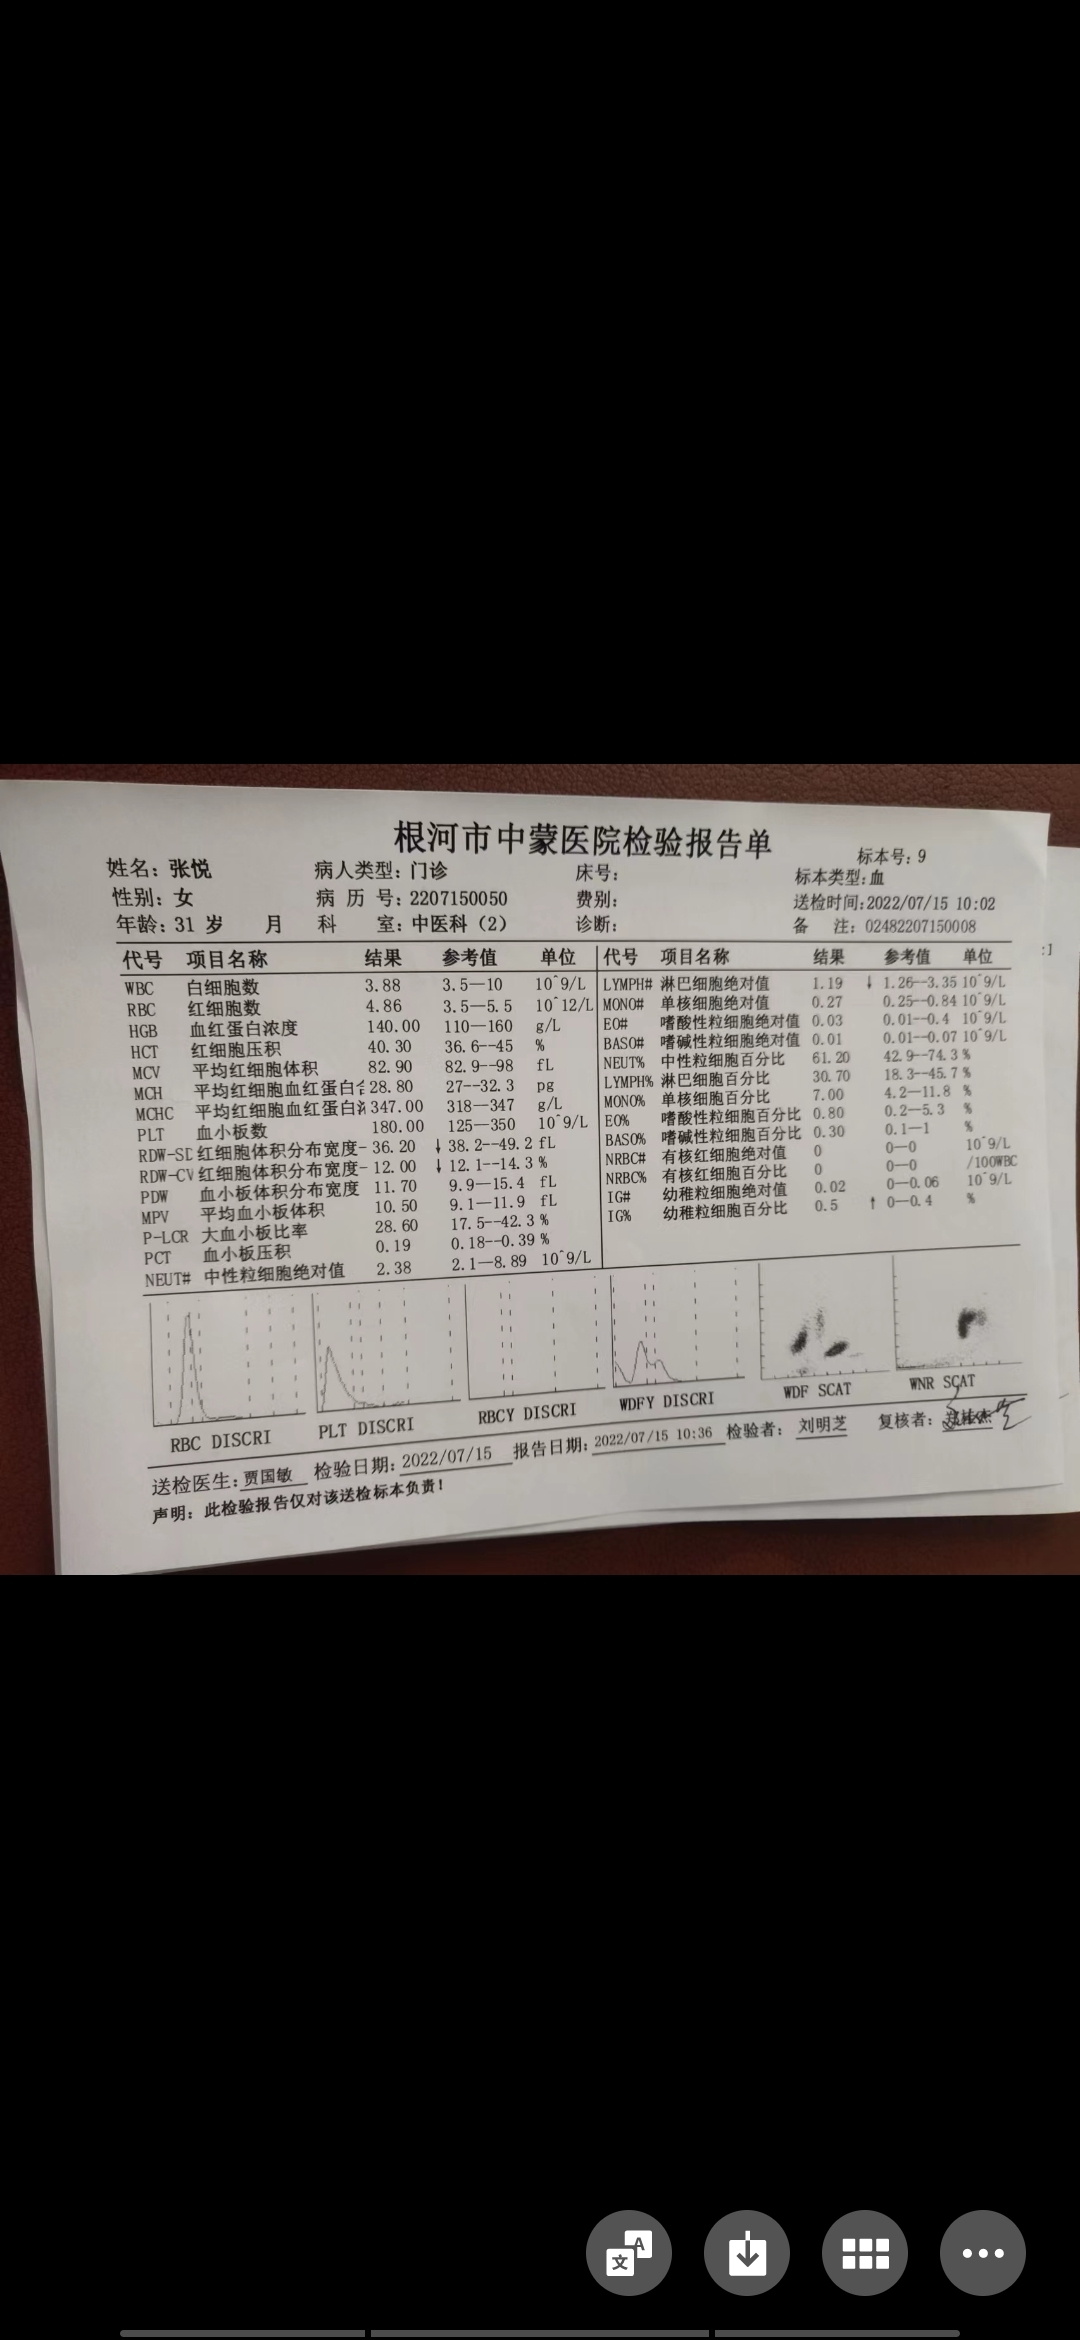 根河市中蒙医院检验报告单
标本号: 9
姓名: 张悦 病人类型: 门诊 床号: 标本类型: 血
性别: 女 病 历 号: 2207150050 费别: 送检时间: 2022/07/15 10:02
年龄: 31 岁 月 科 室: 中医科 (2) 诊断: 备 注: 02482207150008
代号 项目名称 结果 参考值 单位
WBC 白细胞数 3.88 3.5—10 10^9/L
RBC 红细胞数 4.86 3.5—5.5 10^12/L
HGB 血红蛋白浓度 140.00 110—160 g/L
HCT 红细胞压积 40.30 36.6--45 %
MCV 平均红细胞体积 82.90 82.9—98 fL
MCH 平均红细胞血红蛋白 28.80 27—32.3 pg
MCHC 平均红细胞血红蛋白 347.00 318—347 g/L
PLT 血小板数 180.00 125—350 10^9/L
RDW-SD 红细胞体积分布宽度- 36.20 ↓ 38.2--49.2 fL
RDW-CV 红细胞体积分布宽度- 12.00 ↓ 12.1--14.3 %
PDW 血小板体积分布宽度 11.70 9.9—15.4 fL
MPV 平均血小板体积 10.50 9.1—11.9 fL
P-LCR 大血小板比率 28.60 17.5--42.3 %
PCT 血小板压积 0.19 0.18--0.39 %
NEUT# 中性粒细胞绝对值 2.38 2.1—8.89 10^9/L
代号 项目名称 结果 参考值 单位
LYMPH# 淋巴细胞绝对值 1.19 ↓ 1.26--3.35 10^9/L
MONO# 单核细胞绝对值 0.27 0.25--0.84 10^9/L
EO# 嗜酸性粒细胞绝对值 0.03 0.01—0.4 10^9/L
BASO# 嗜碱性粒细胞绝对值 0.01 0.01--0.07 10^9/L
NEUT% 中性粒细胞百分比 61.20 42.9--74.3 %
LYMPH% 淋巴细胞百分比 30.70 18.3--45.7 %
MONO% 单核细胞百分比 7.00 4.2—11.8 %
EO% 嗜酸性粒细胞百分比 0.80 0.2—5.3 %
BASO% 嗜碱性粒细胞百分比 0.30 0.1—1 %
NRBC# 有核红细胞绝对值 0 0—0 10^9/L
NRBC% 有核红细胞百分比 0 0—0 /100WBC
IG# 幼稚粒细胞绝对值 0.02 0—0.06 10^9/L
IG% 幼稚粒细胞百分比 0.5 ↑ 0—0.4 %
RBC DISCRI PLT DISCRI RBCY DISCRI WDFY DISCRI WDF SCAT WNR SCAT
送检医生: 贾国敏 检验日期: 2022/07/15 报告日期: 2022/07/15 10:36 检验者: 刘明芝 复核者:
声明: 此检验报告仅对该送检标本负责!